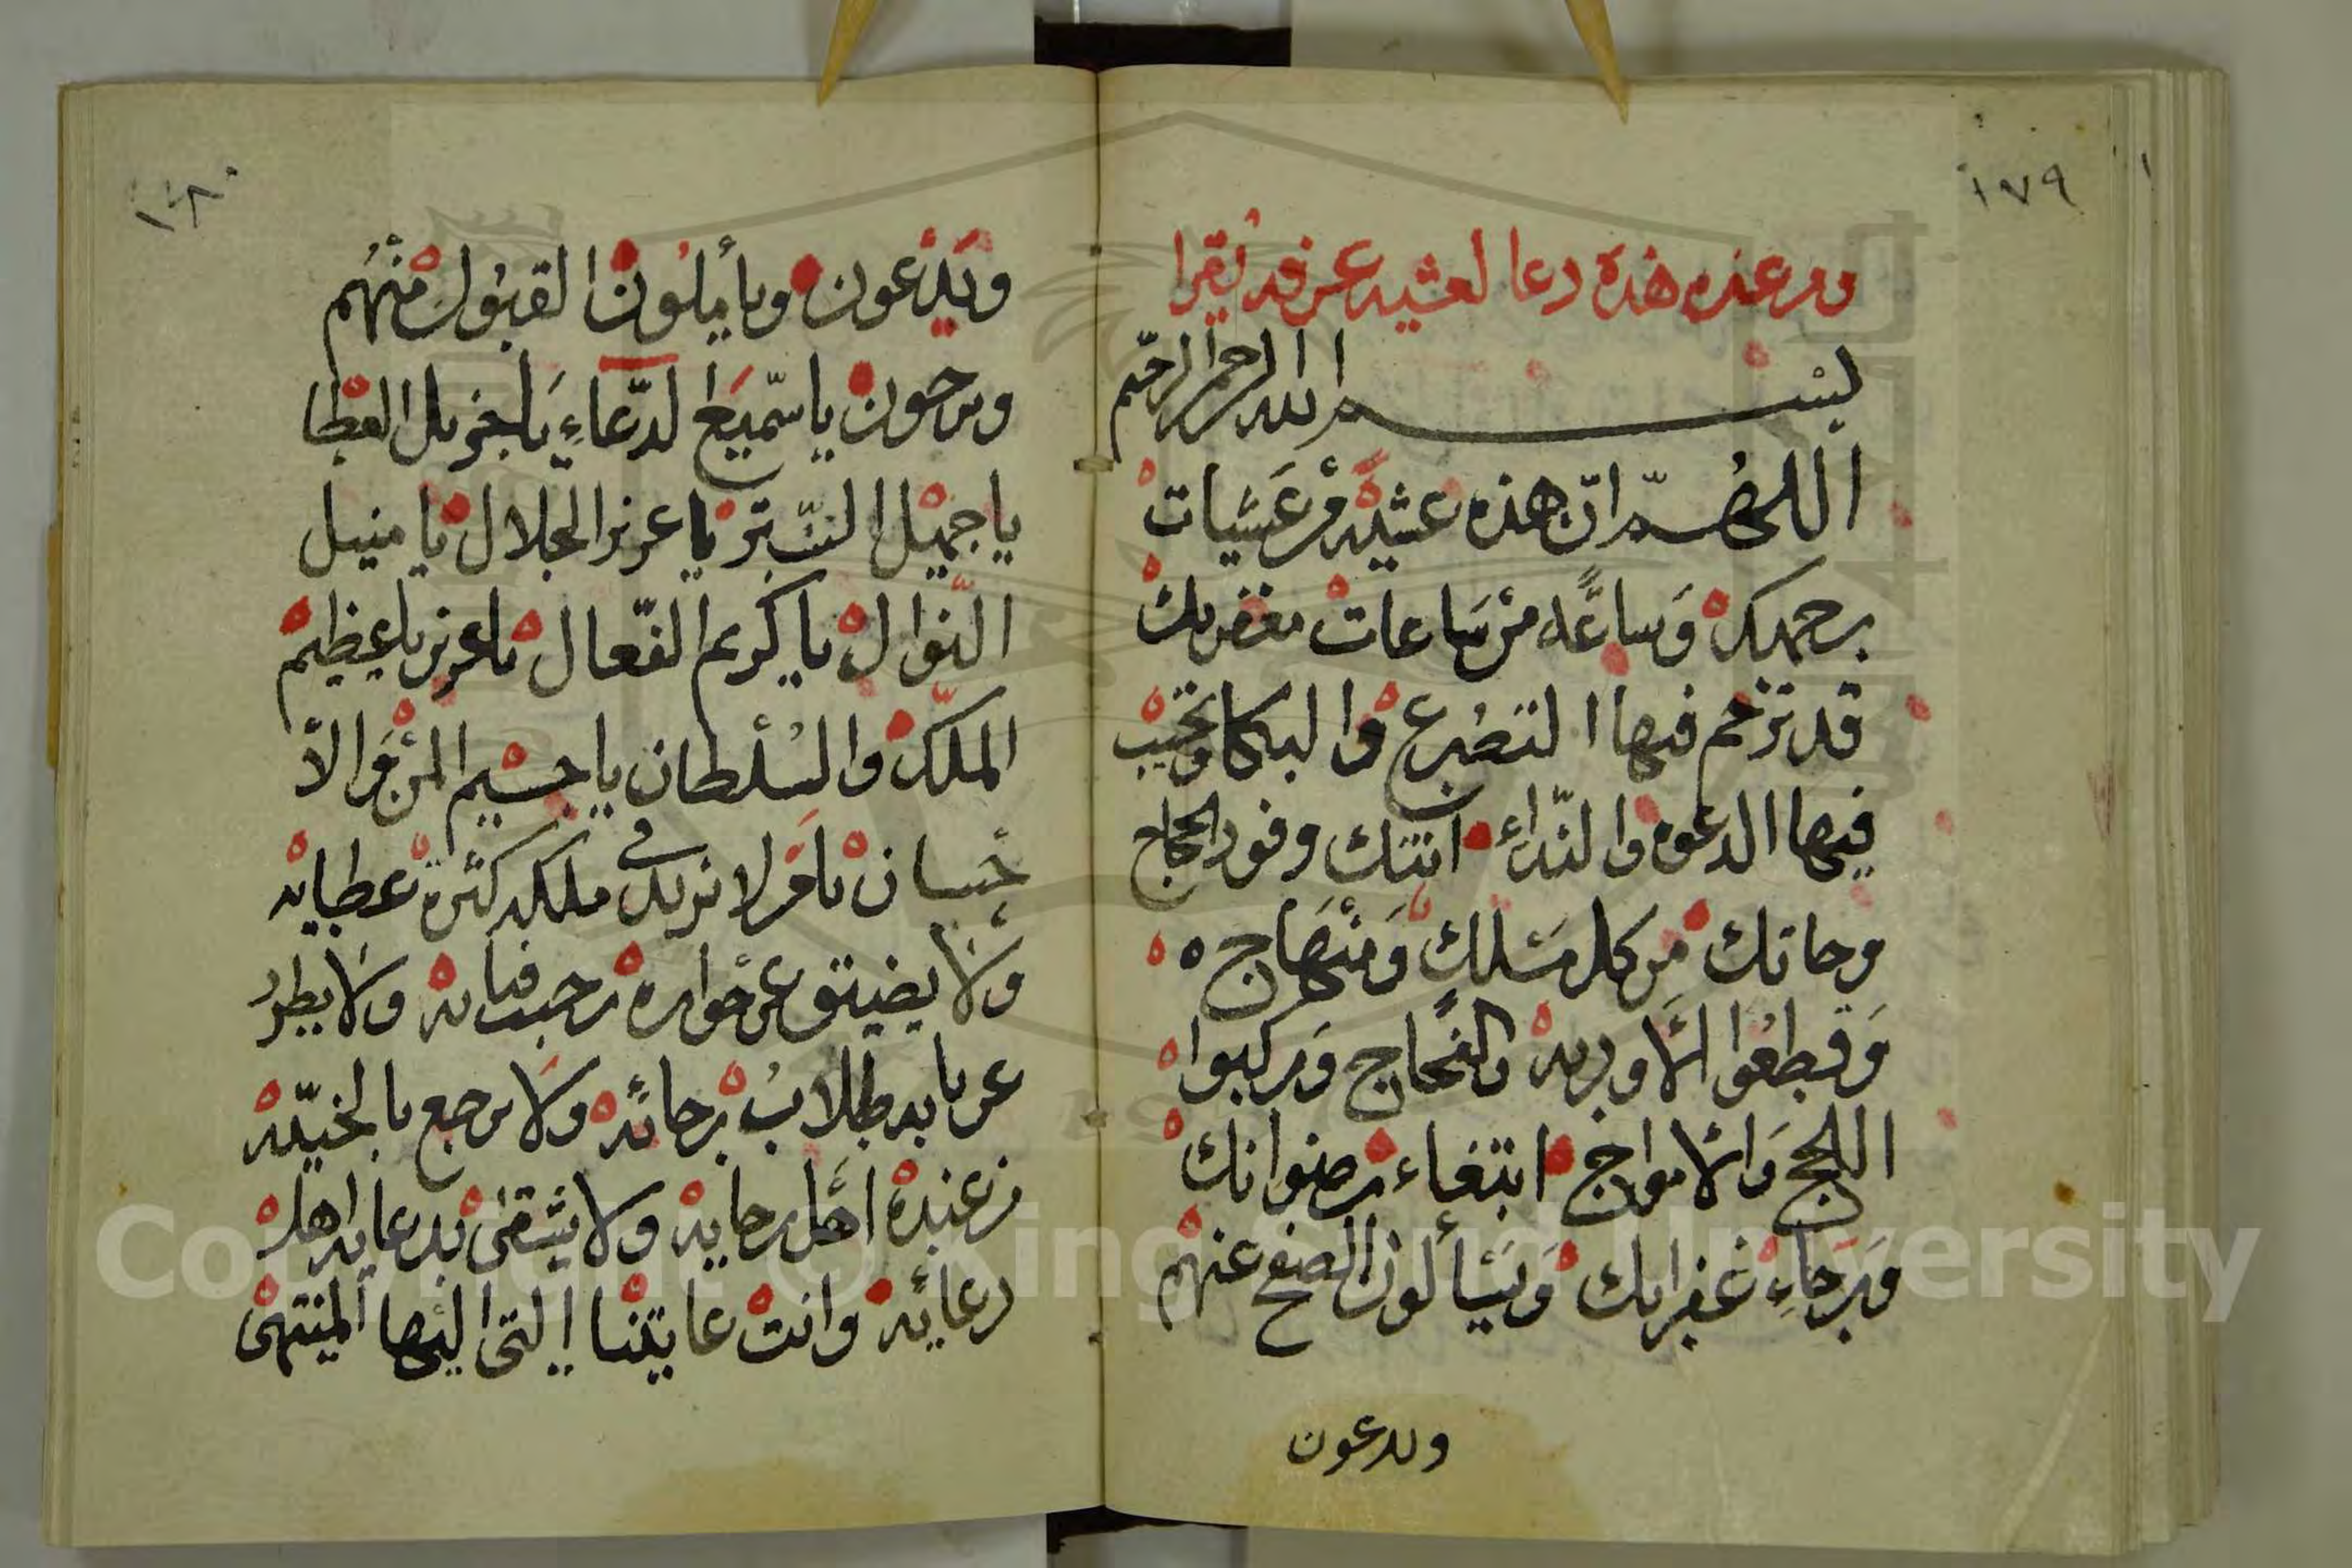 ١٧٩
ومن عنده هذه دعا لعشيه عرفه يقرا
بسم الله الرحمن الرحيم
اللهم ان هذه عشية من عشيات
رحمتك وساعة من ساعات مغفرتك
قد ترحم فيها التضرع والبكا وتجيب
فيها الدعوه والندائ اتتك وفود الحجاج
وجاتك من كل مسلك ومنهاج ه
وقطعوا الاوديه والفجاج وركبوا
اللجج والامواج ابتغاء رضوانك
ورجاء غفرانك ويسألون الصفح عنهم
ويدعون
١٨٠
ويدعون ويأملون القبول منهم
ويرجون يا سميع الدعاء يا جزيل العطا
يا جميل الستر يا عزيز الجلال يا منيل
النوال يا كريم الفعال يا عزيز يا عظيم
الملك والسلطان يا جسيم المن والا
حسان يا من لا يزيل في ملكه كثرة عطايه
ولا يضيق عن جواره رحب فنايه ولا يطرد
عن بابه طلاب رجائه ولا يرجع بالخيبه
من عنده اهل رجايه ولا يشقى بدعايه اهل
دعائه وانت غايتنا التى اليها المنتهى
Copyright © King Saud University